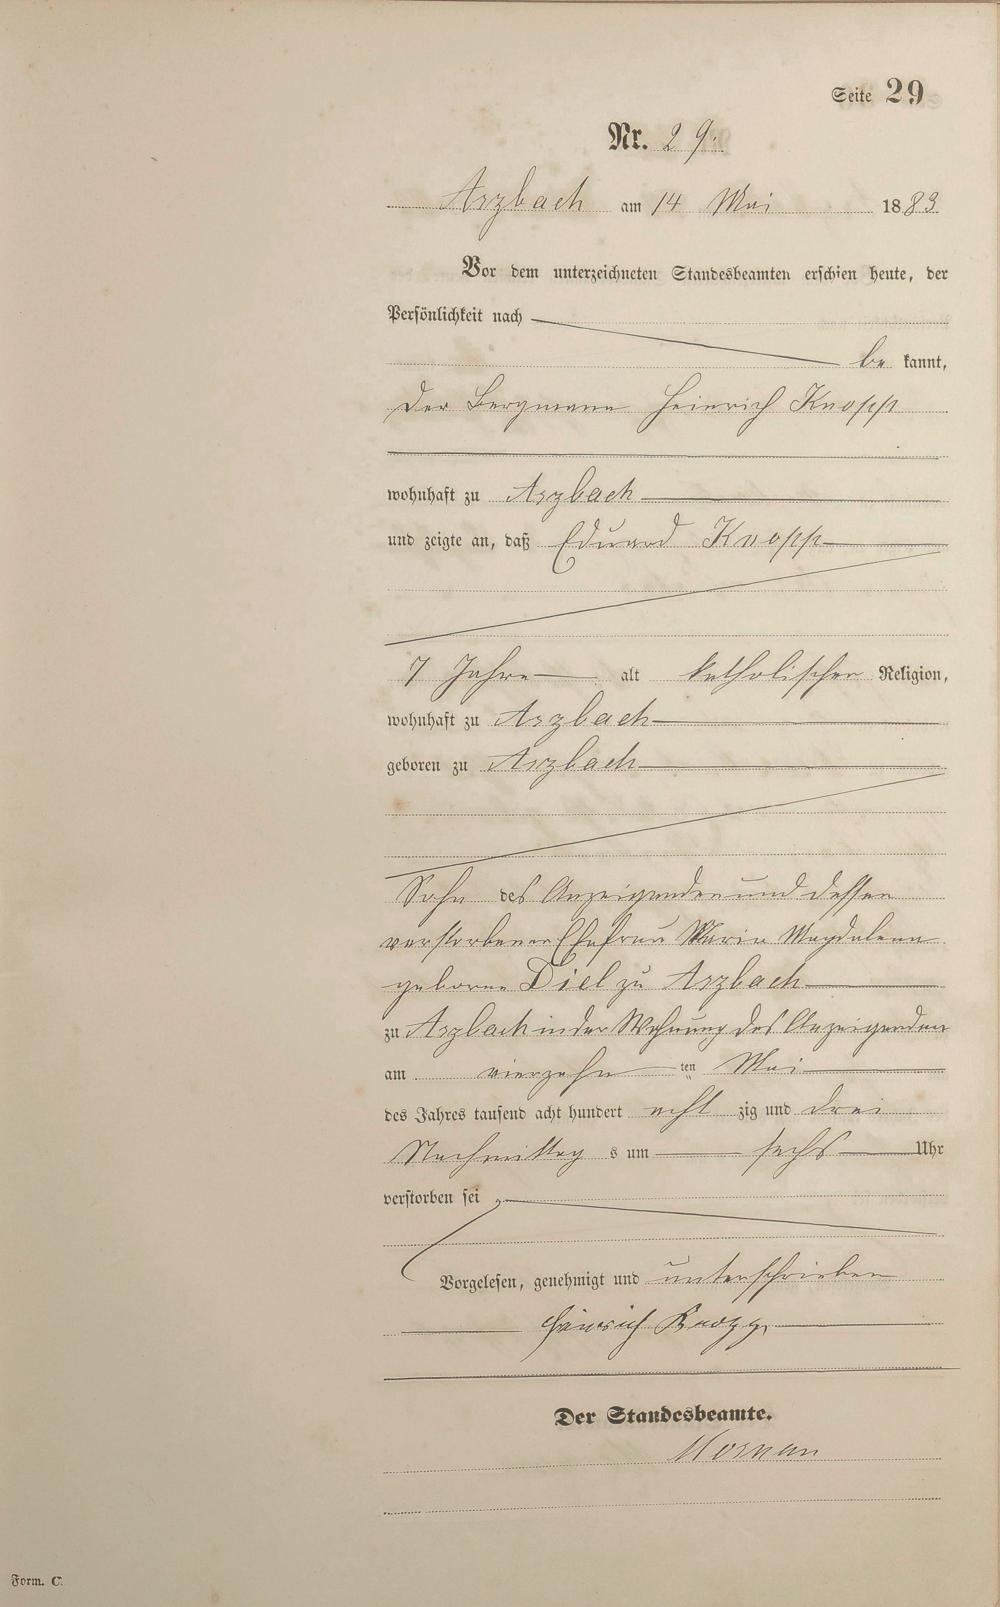 Seite 29
Nr. 29.
Arzbach am 14 Mai 1883
Vor dem unterzeichneten Standesbeamten erschien heute, der
Persönlichkeit nach
be kannt,
der Bergmann Heinrich Knopp
wohnhaft zu Arzbach
und zeigte an, daß Eduard Knopp
7 Jahre alt katholischer Religion,
wohnhaft zu Arzbach
geboren zu Arzbach
Sohn des Anzeigenden und dessen
verstorbener Ehefrau Maria Magdalena
geborne Diel zu Arzbach
zu Arzbach in der Wohnung des Anzeigenden
am vierzehn ten Mai
des Jahres tausend acht hundert acht zig und drei
Nachmittag s um sechs Uhr
verstorben sei
Vorgelesen, genehmigt und unterschrieben
Heinrich Knopp
Der Standesbeamte.
Form. C.